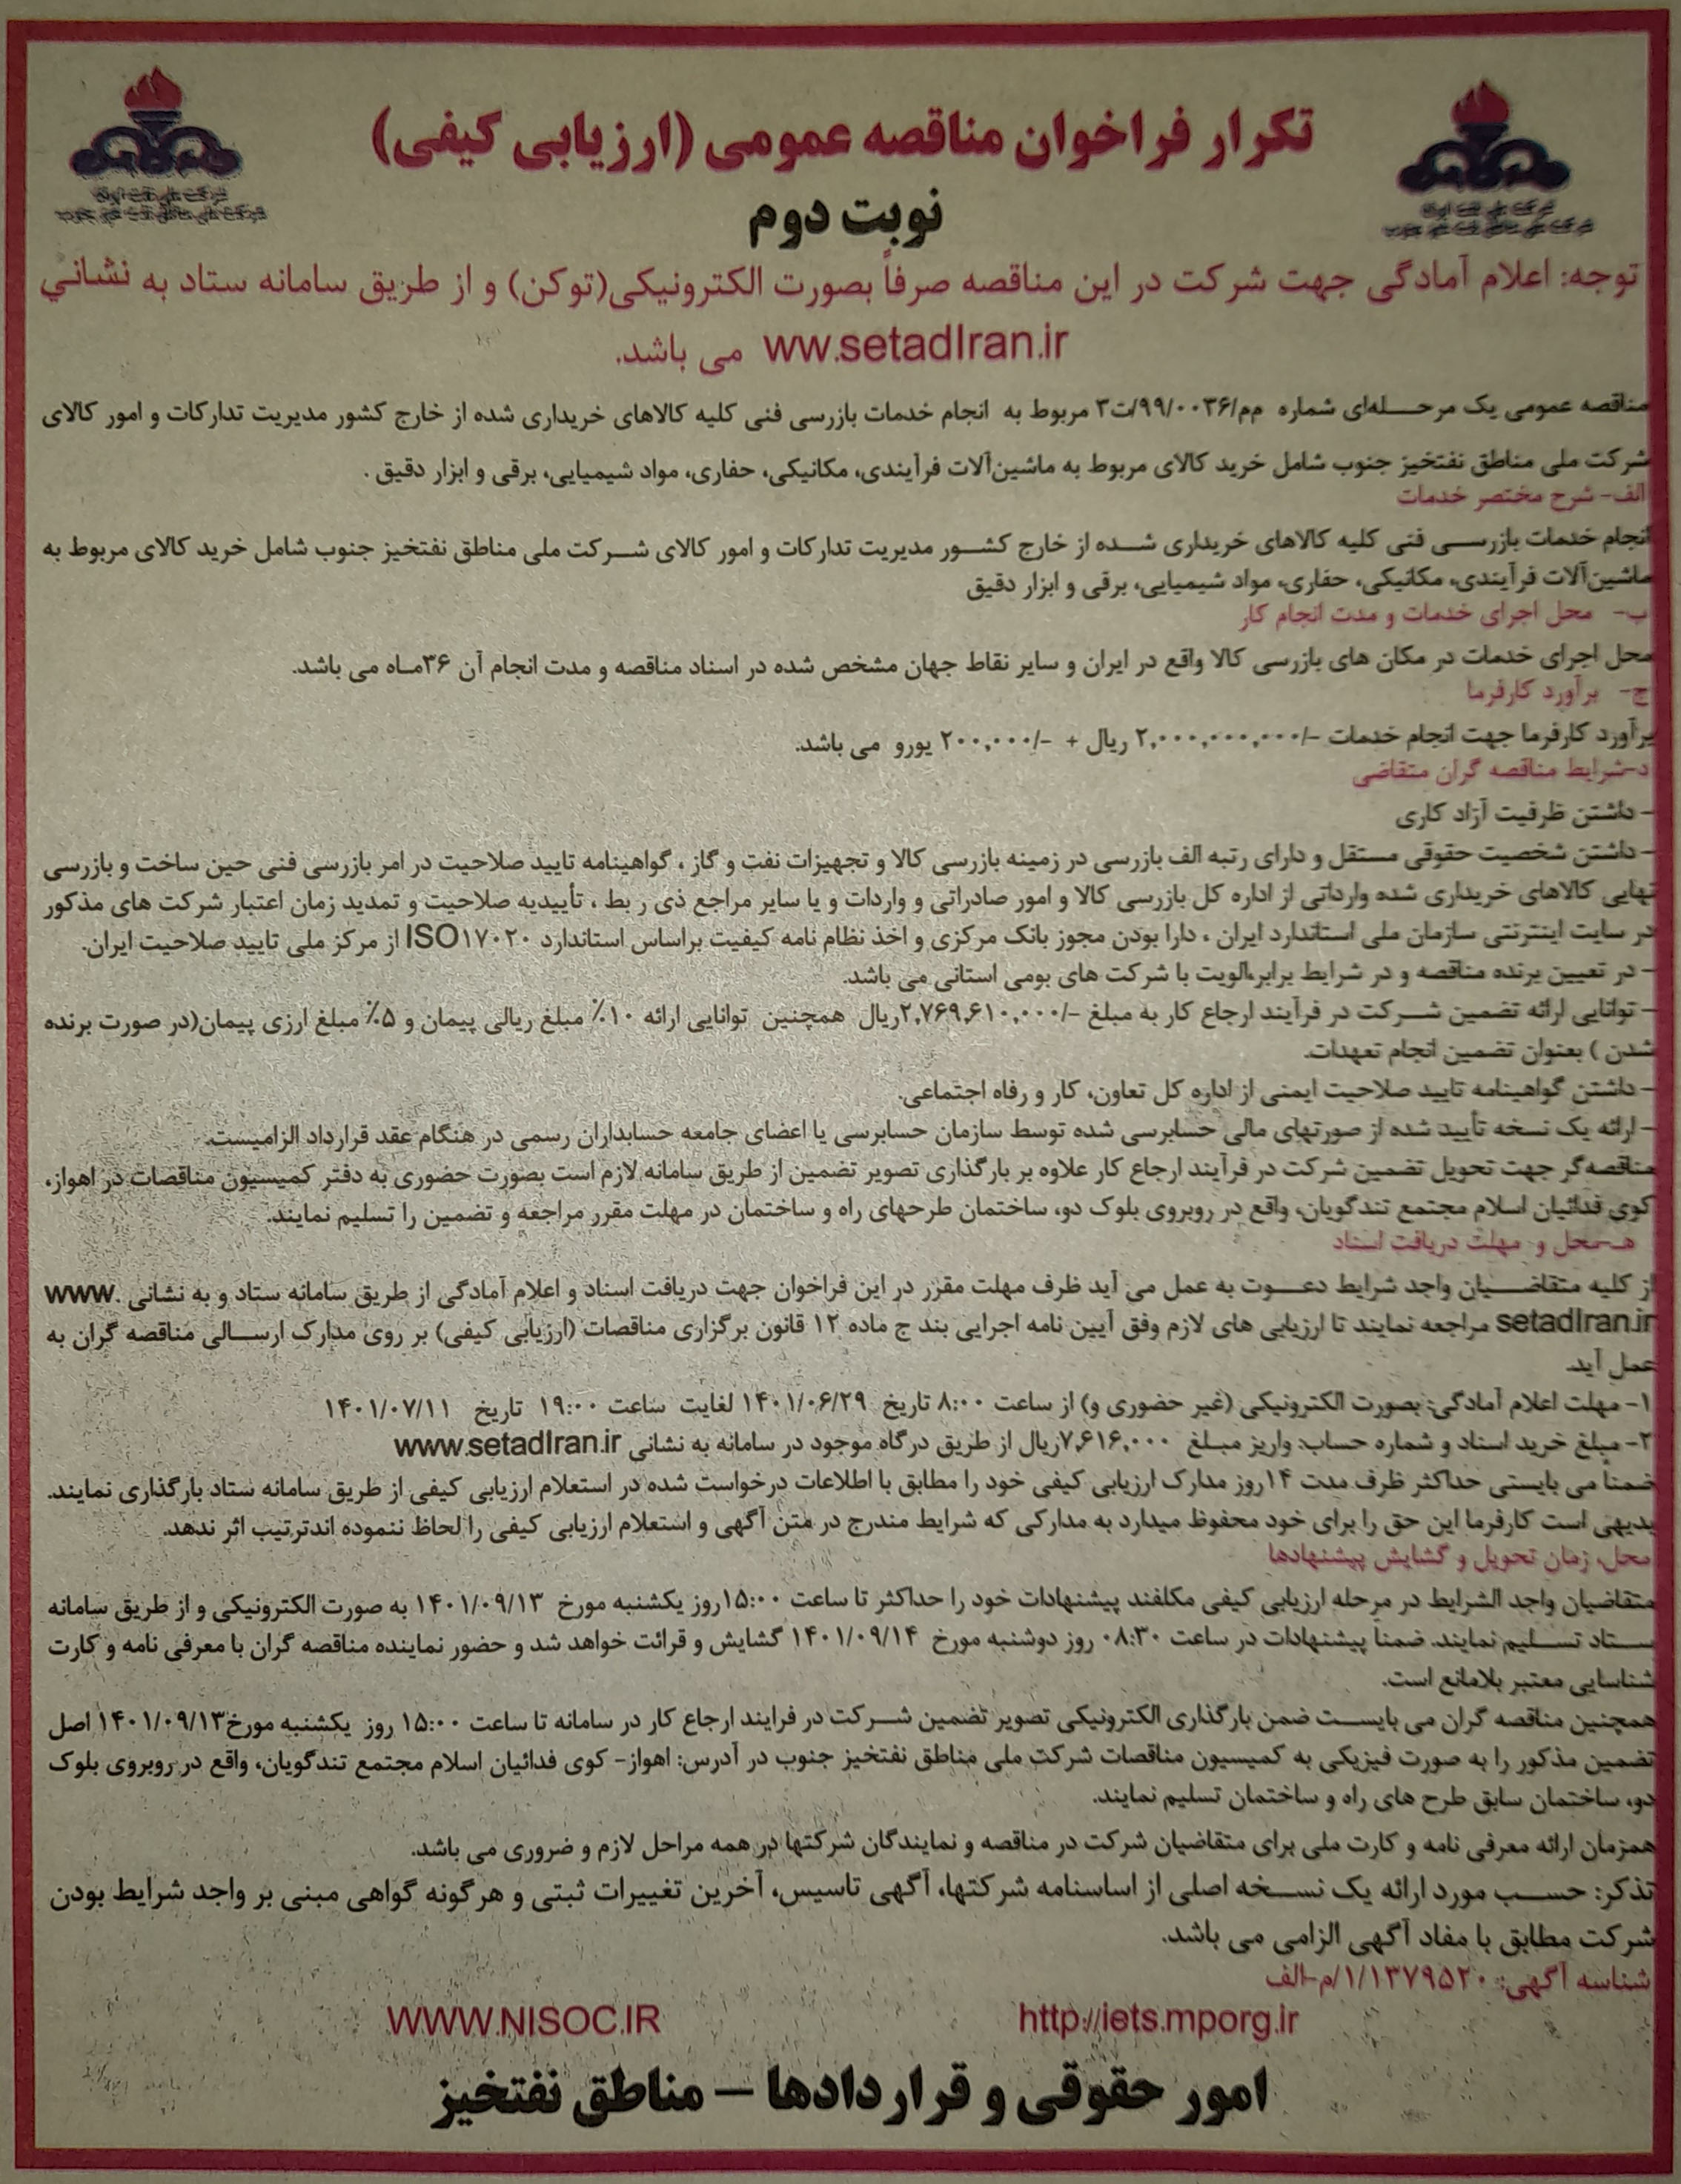 تکرار فراخوان مناقصه عمومی (ارزیابی کیفی)
نوبت دوم
توجه: اعلام آمادگی جهت شرکت در این مناقصه صرفاً بصورت الکترونیکی(توکن) و از طریق سامانه ستاد به نشاني
ww.setadIran.ir می باشد.
مناقصه عمومی یک مرحله‌ای شماره مم/۹۹/۰۰۳۶/ت۳ مربوط به انجام خدمات بازرسی فنی کلیه کالاهای خریداری شده از خارج کشور مدیریت تدارکات و امور کالای
شرکت ملی مناطق نفتخیز جنوب شامل خرید کالای مربوط به ماشین‌آلات فرآیندی، مکانیکی، حفاری، مواد شیمیایی، برقی و ابزار دقیق .
الف- شرح مختصر خدمات
انجام خدمات بازرسی فنی کلیه کالاهای خریداری شده از خارج کشور مدیریت تدارکات و امور کالای شرکت ملی مناطق نفتخیز جنوب شامل خرید کالای مربوط به
ماشین‌آلات فرآیندی، مکانیکی، حفاری، مواد شیمیایی، برقی و ابزار دقیق
ب- محل اجرای خدمات و مدت انجام کار
محل اجرای خدمات در مکان های بازرسی کالا واقع در ایران و سایر نقاط جهان مشخص شده در اسناد مناقصه و مدت انجام آن ۳۶ماه می باشد.
ج- برآورد کارفرما
برآورد کارفرما جهت انجام خدمات -/۲,۰۰۰,۰۰۰,۰۰۰ ریال + -/۲۰۰,۰۰۰ یورو می باشد.
د-شرایط مناقصه گران متقاضی
- داشتن ظرفیت آزاد کاری
- داشتن شخصیت حقوقی مستقل و دارای رتبه الف بازرسی در زمینه بازرسی کالا و تجهیزات نفت و گاز ، گواهینامه تایید صلاحیت در امر بازرسی فنی حین ساخت و بازرسی
نهایی کالاهای خریداری شده وارداتی از اداره کل بازرسی کالا و امور صادراتی و واردات و یا سایر مراجع ذی ربط ، تأییدیه صلاحیت و تمدید زمان اعتبار شرکت های مذکور
در سایت اینترنتی سازمان ملی استاندارد ایران ، دارا بودن مجوز بانک مرکزی و اخذ نظام نامه کیفیت براساس استاندارد ISO۱۷۰۲۰ از مرکز ملی تایید صلاحیت ایران.
- در تعیین برنده مناقصه و در شرایط برابر،الویت با شرکت های بومی استانی می باشد.
- توانایی ارائه تضمین شرکت در فرآیند ارجاع کار به مبلغ -/۲,۷۶۹,۶۱۰,۰۰۰ریال همچنین توانایی ارائه ۱۰٪ مبلغ ریالی پیمان و ۵٪ مبلغ ارزی پیمان(در صورت برنده
شدن ) بعنوان تضمین انجام تعهدات.
- داشتن گواهینامه تایید صلاحیت ایمنی از اداره کل تعاون، کار و رفاه اجتماعی.
- ارائه یک نسخه تأیید شده از صورتهای مالی حسابرسی شده توسط سازمان حسابرسی یا اعضای جامعه حسابداران رسمی در هنگام عقد قرارداد الزامیست.
مناقصه‌گر جهت تحویل تضمین شرکت در فرآیند ارجاع کار علاوه بر بارگذاری تصویر تضمین از طریق سامانه لازم است بصورت حضوری به دفتر کمیسیون مناقصات در اهواز،
کوی فدائیان اسلام مجتمع تندگویان، واقع در روبروی بلوک دو، ساختمان طرحهای راه و ساختمان در مهلت مقرر مراجعه و تضمین را تسلیم نمایند.
هـ-محل و مهلت دریافت اسناد
از کلیه متقاضیان واجد شرایط دعوت به عمل می آید ظرف مهلت مقرر در این فراخوان جهت دریافت اسناد و اعلام آمادگی از طریق سامانه ستاد و به نشانی www.
setadIran.ir مراجعه نمایند تا ارزیابی های لازم وفق آیین نامه اجرایی بند ج ماده ۱۲ قانون برگزاری مناقصات (ارزیابی کیفی) بر روی مدارک ارسالی مناقصه گران به
عمل آید.
۱- مهلت اعلام آمادگی: بصورت الکترونیکی (غیر حضوری و) از ساعت ۸:۰۰ تاریخ ۱۴۰۱/۰۶/۲۹ لغایت ساعت ۱۹:۰۰ تاریخ ۱۴۰۱/۰۷/۱۱
۲- مبلغ خرید اسناد و شماره حساب: واریز مبلغ ۷,۶۱۶,۰۰۰ریال از طریق درگاه موجود در سامانه به نشانی www.setadIran.ir
ضمناً می بایستی حداکثر ظرف مدت ۱۴روز مدارک ارزیابی کیفی خود را مطابق با اطلاعات درخواست شده در استعلام ارزیابی کیفی از طریق سامانه ستاد بارگذاری نمایند.
بدیهی است کارفرما این حق را برای خود محفوظ میدارد به مدارکی که شرایط مندرج در متن آگهی و استعلام ارزیابی کیفی را لحاظ ننموده اندترتیب اثر ندهد.
محل، زمان تحویل و گشایش پیشنهادها
متقاضیان واجد الشرایط در مرحله ارزیابی کیفی مکلفند پیشنهادات خود را حداکثر تا ساعت ۱۵:۰۰روز یکشنبه مورخ ۱۴۰۱/۰۹/۱۳ به صورت الکترونیکی و از طریق سامانه
ستاد تسلیم نمایند. ضمناً پیشنهادات در ساعت ۰۸:۳۰ روز دوشنبه مورخ ۱۴۰۱/۰۹/۱۴ گشایش و قرائت خواهد شد و حضور نماینده مناقصه گران با معرفی نامه و کارت
شناسایی معتبر بلامانع است.
همچنین مناقصه گران می بایست ضمن بارگذاری الکترونیکی تصویر تضمین شرکت در فرایند ارجاع کار در سامانه تا ساعت ۱۵:۰۰ روز یکشنبه مورخ۱۴۰۱/۰۹/۱۳ اصل
تضمین مذکور را به صورت فیزیکی به کمیسیون مناقصات شرکت ملی مناطق نفتخیز جنوب در آدرس: اهواز- کوی فدائیان اسلام مجتمع تندگویان، واقع در روبروی بلوک
دو، ساختمان سابق طرح های راه و ساختمان تسلیم نمایند.
همزمان ارائه معرفی نامه و کارت ملی برای متقاضیان شرکت در مناقصه و نمایندگان شرکتها در همه مراحل لازم و ضروری می باشد.
تذکر: حسب مورد ارائه یک نسخه اصلی از اساسنامه شرکتها، آگهی تاسیس، آخرین تغییرات ثبتی و هرگونه گواهی مبنی بر واجد شرایط بودن
شرکت مطابق با مفاد آگهی الزامی می باشد.
شناسه آگهی: ۱/۱۳۷۹۵۲۰/م-الف
http://iets.mporg.ir WWW.NISOC.IR
امور حقوقی و قراردادها – مناطق نفتخیز